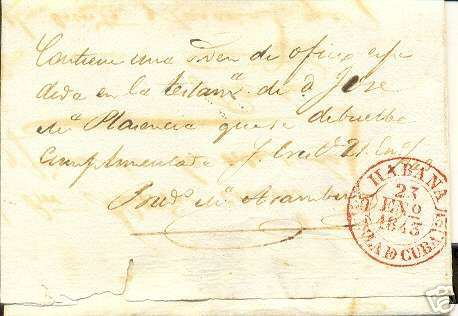 Contiene una orden de oficio espe
dida en la testam.ª de d. Jose
M.ª Plasencia que se debuelbe
cumplimentada
M.ª Arambu
HABANA
23
ENº
1843
YSLA D CUBA